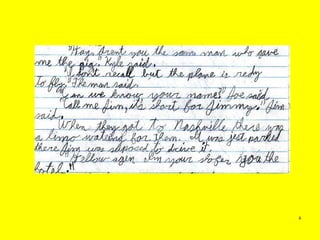 "Hay. Arent you the same man who save
me the pig." Kyle said.
"I don't recall but the plane is redy
To fly." The man said.
"Can we know your name?" Joe said.
"Call me Jim, it's short for Jimmy." Jim
said.
When they got to Nashville there was
a limo waiting for them. It was jest parked
there Jim was suposed to drive it.
"Hellow agen I'm your shofer you the
hotal."